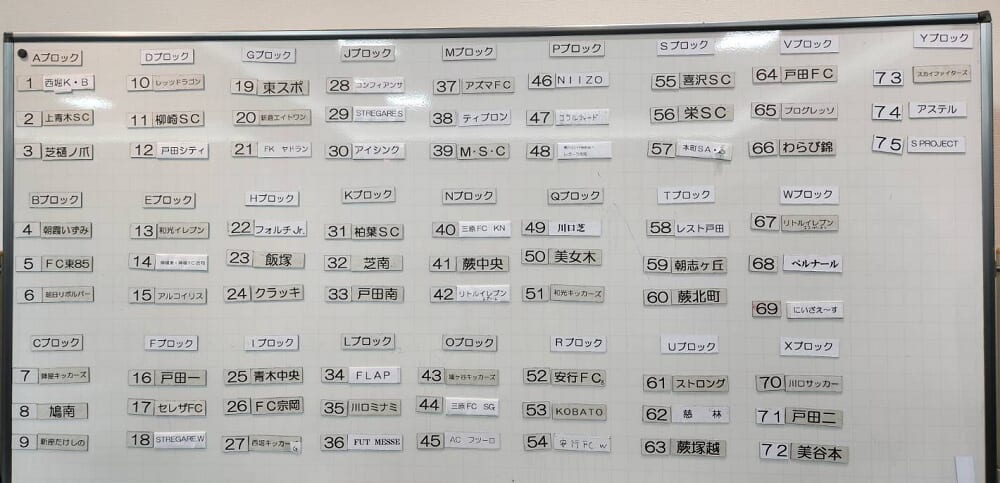 Aブロック
1 西堀K・B
2 上青木SC
3 芝樋ノ爪
Bブロック
4 朝霞いずみ
5 FC東85
6 朝日リボルバー
Cブロック
7 鎌座キッカーズ
8 鳩南
9 新座たけしの
Dブロック
10 レッドドラゴン
11 柳崎SC
12 戸田シティ
Eブロック
13 和光イレブン
14
15 アルコイリス
Fブロック
16 戸田一
17 セレザFC
18 STREGARE.W
Gブロック
19 東スポ
20 新倉エイトワン
21 FK ヤドラン
Hブロック
22 フォルチJr.
23 飯塚
24 クラッキ
Iブロック
25 青木中央
26 FC宗岡
27 西堀キッカーズG
Jブロック
28 コンフィアンサ
29 STREGARE S
30 アイシンク
Kブロック
31 柏葉SC
32 芝南
33 戸田南
Lブロック
34 FLAP
35 川口ミナミ
36 FUT MESSE
Mブロック
37 アズマFC
38 ティブロン
39 M・S・C
Nブロック
40 三原FC KN
41 蕨中央
42 リトルイレブン
Oブロック
43 鳩ヶ谷キッカーズ
44 三原FC SG
45 AC フツーロ
Pブロック
46 NIIZO
47
48
Qブロック
49 川口芝
50 美女木
51 和光キッカーズ
Rブロック
52 安行FC
53 KOBATO
54 安行FC W
Sブロック
55 喜沢SC
56 栄SC
57 本町SA・
Tブロック
58 レスト戸田
59 朝志ヶ丘
60 蕨北町
Uブロック
61 ストロング
62 慈林
63 蕨塚越
Vブロック
64 戸田FC
65 プログレッソ
66 わらび錦
Wブロック
67 リトルイレブン
68 ベルナール
69 にいざえ～す
Xブロック
70 川口サッカー
71 戸田二
72 美谷本
Yブロック
73 スカイファイターズ
74 アステル
75 S PROJECT